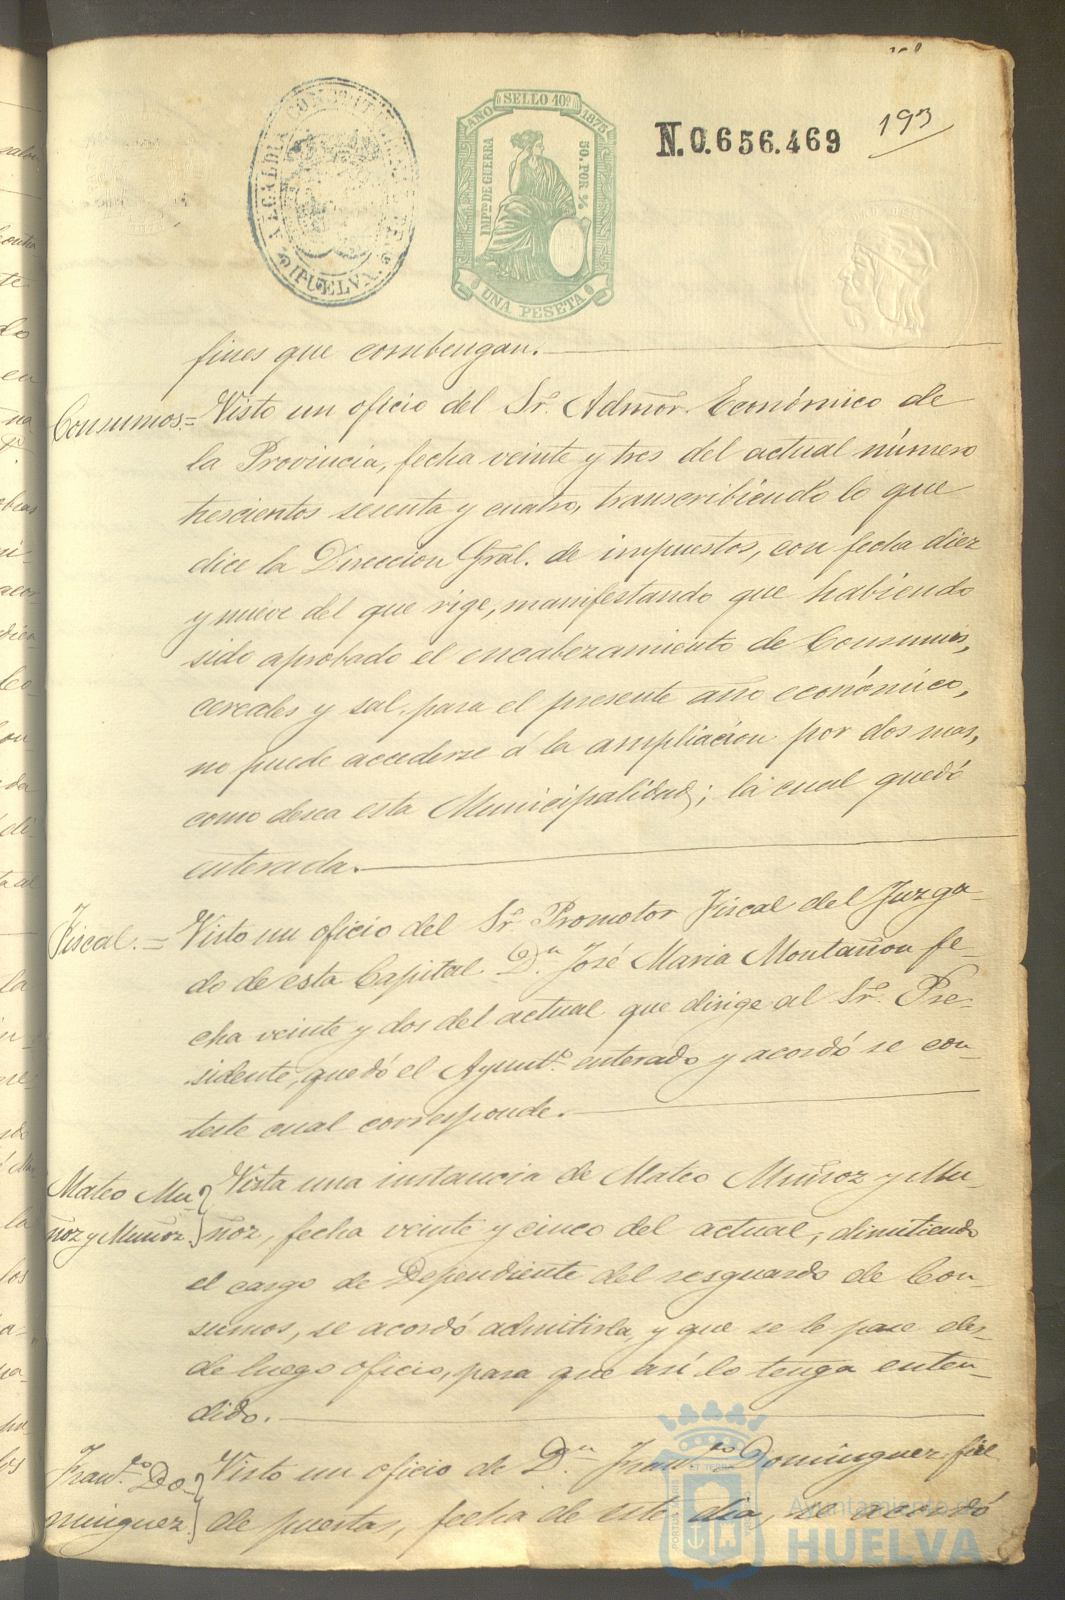 193
ALCALDIA CONSTITUCIONAL DE HUELVA
AÑO SELLO 10º 1875
IMPTO DE GUERRA
50. POR %
UNA PESETA
N.0.656.469
fines que combengan.
Consumos.= Visto un oficio del Sr. Admor. Económico de
la Provincia, fecha veinte y tres del actual número
trescientos sesenta y cuatro, transcribiendo lo que
dice la Direccion Gral. de impuestos, con fecha diez
y nueve del que rige, manifestando que habiendo
sido aprobado el encabezamiento de Consumos,
cereales y sal, para el presente año económico,
no puede accederse á la ampliacion por dos mas,
como desea esta Municipalidad; la cual quedó
enterada.
Fiscal.= Visto un oficio del Sr. Promotor Fiscal del Juzga-
do de esta Capital D.n José Maria Montañon fe-
cha veinte y dos del actual que dirige al Sr. Pre-
sidente, quedó el Ayunt.o enterado y acordó se con-
teste cual corresponde.
Mateo Mu- Vista una instancia de Mateo Muñoz y Mu-
ñoz y Muñoz ñoz, fecha veinte y cinco del actual, dimitiendo
el cargo de Dependiente del resguardo de Con-
sumos, se acordó admitirla y que se le pase des-
de luego oficio, para que así lo tenga enten-
dido.
Fran.co Do- Visto un oficio de D.n Fran.co Dominguez fiel
minguez de puertas, fecha de este dia, se acordó
Ayuntamiento de
HUELVA